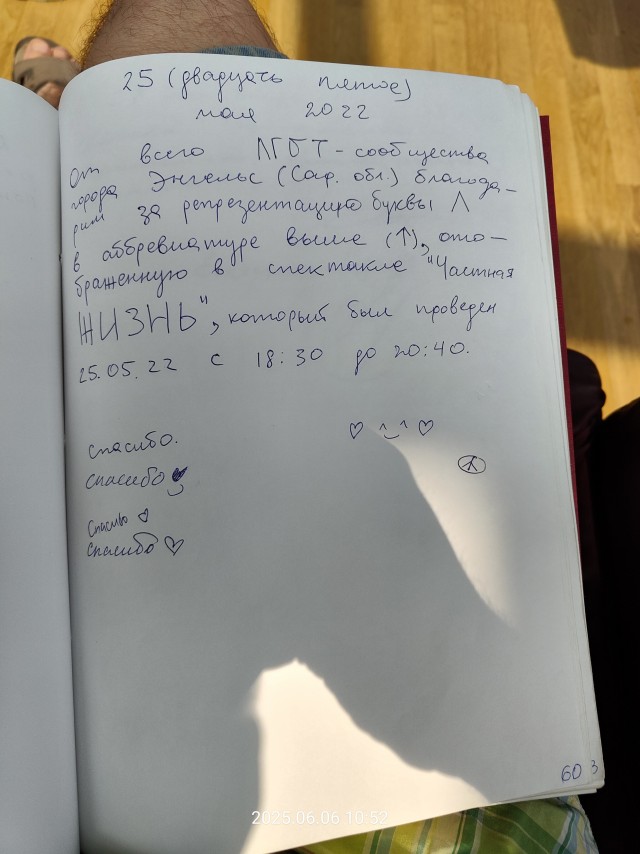 25 (двадцать пятое)
мая 2022
От всего ЛГБТ-сообщества
города Энгельс (Сар. обл.) благода-
рим за репрезентацию буквы Л
в аббревиатуре выше (↑), ото-
браженную в спектакле "Частная
ЖИЗНЬ", который был проведен
25.05.22 с 18:30 до 20:40.
спасибо. ♡ ^‿^ ♡
спасибо ♥ ☮
Спасибо ♡
спасибо ♡
60 3
2025.06.06 10:52